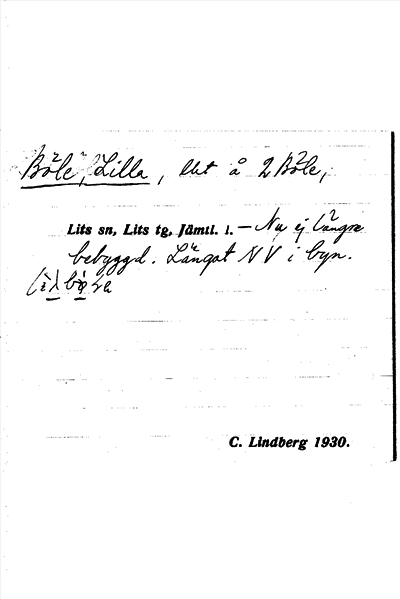 Böle, Lilla, lht å 2 Böle,
Lits sn, Lits tg, Jämtl. l. – Nu ej längre
bebyggd. Längst NV i byn.
C. Lindberg 1930.